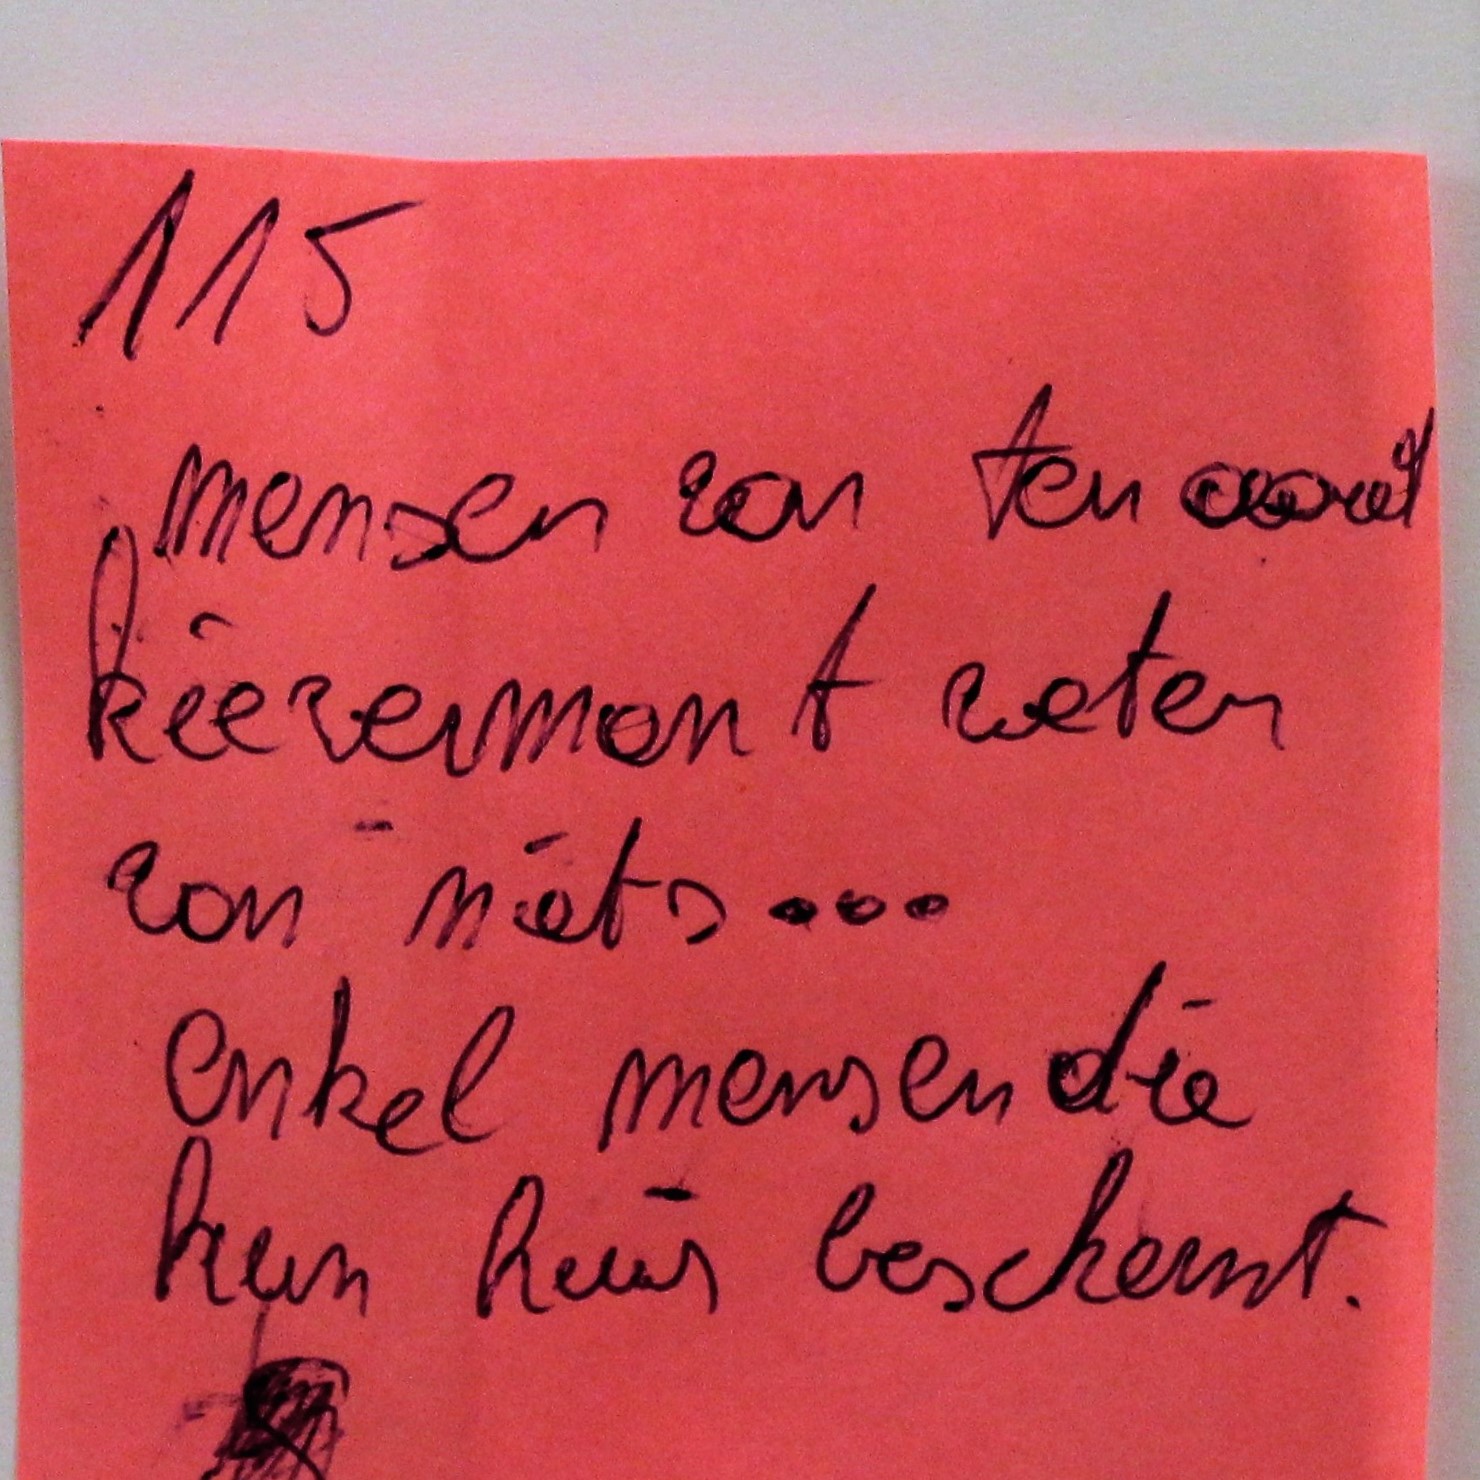 115
mensen van ten
kievermont weten
van niets...
enkel mensen die
hun huis beschermt.